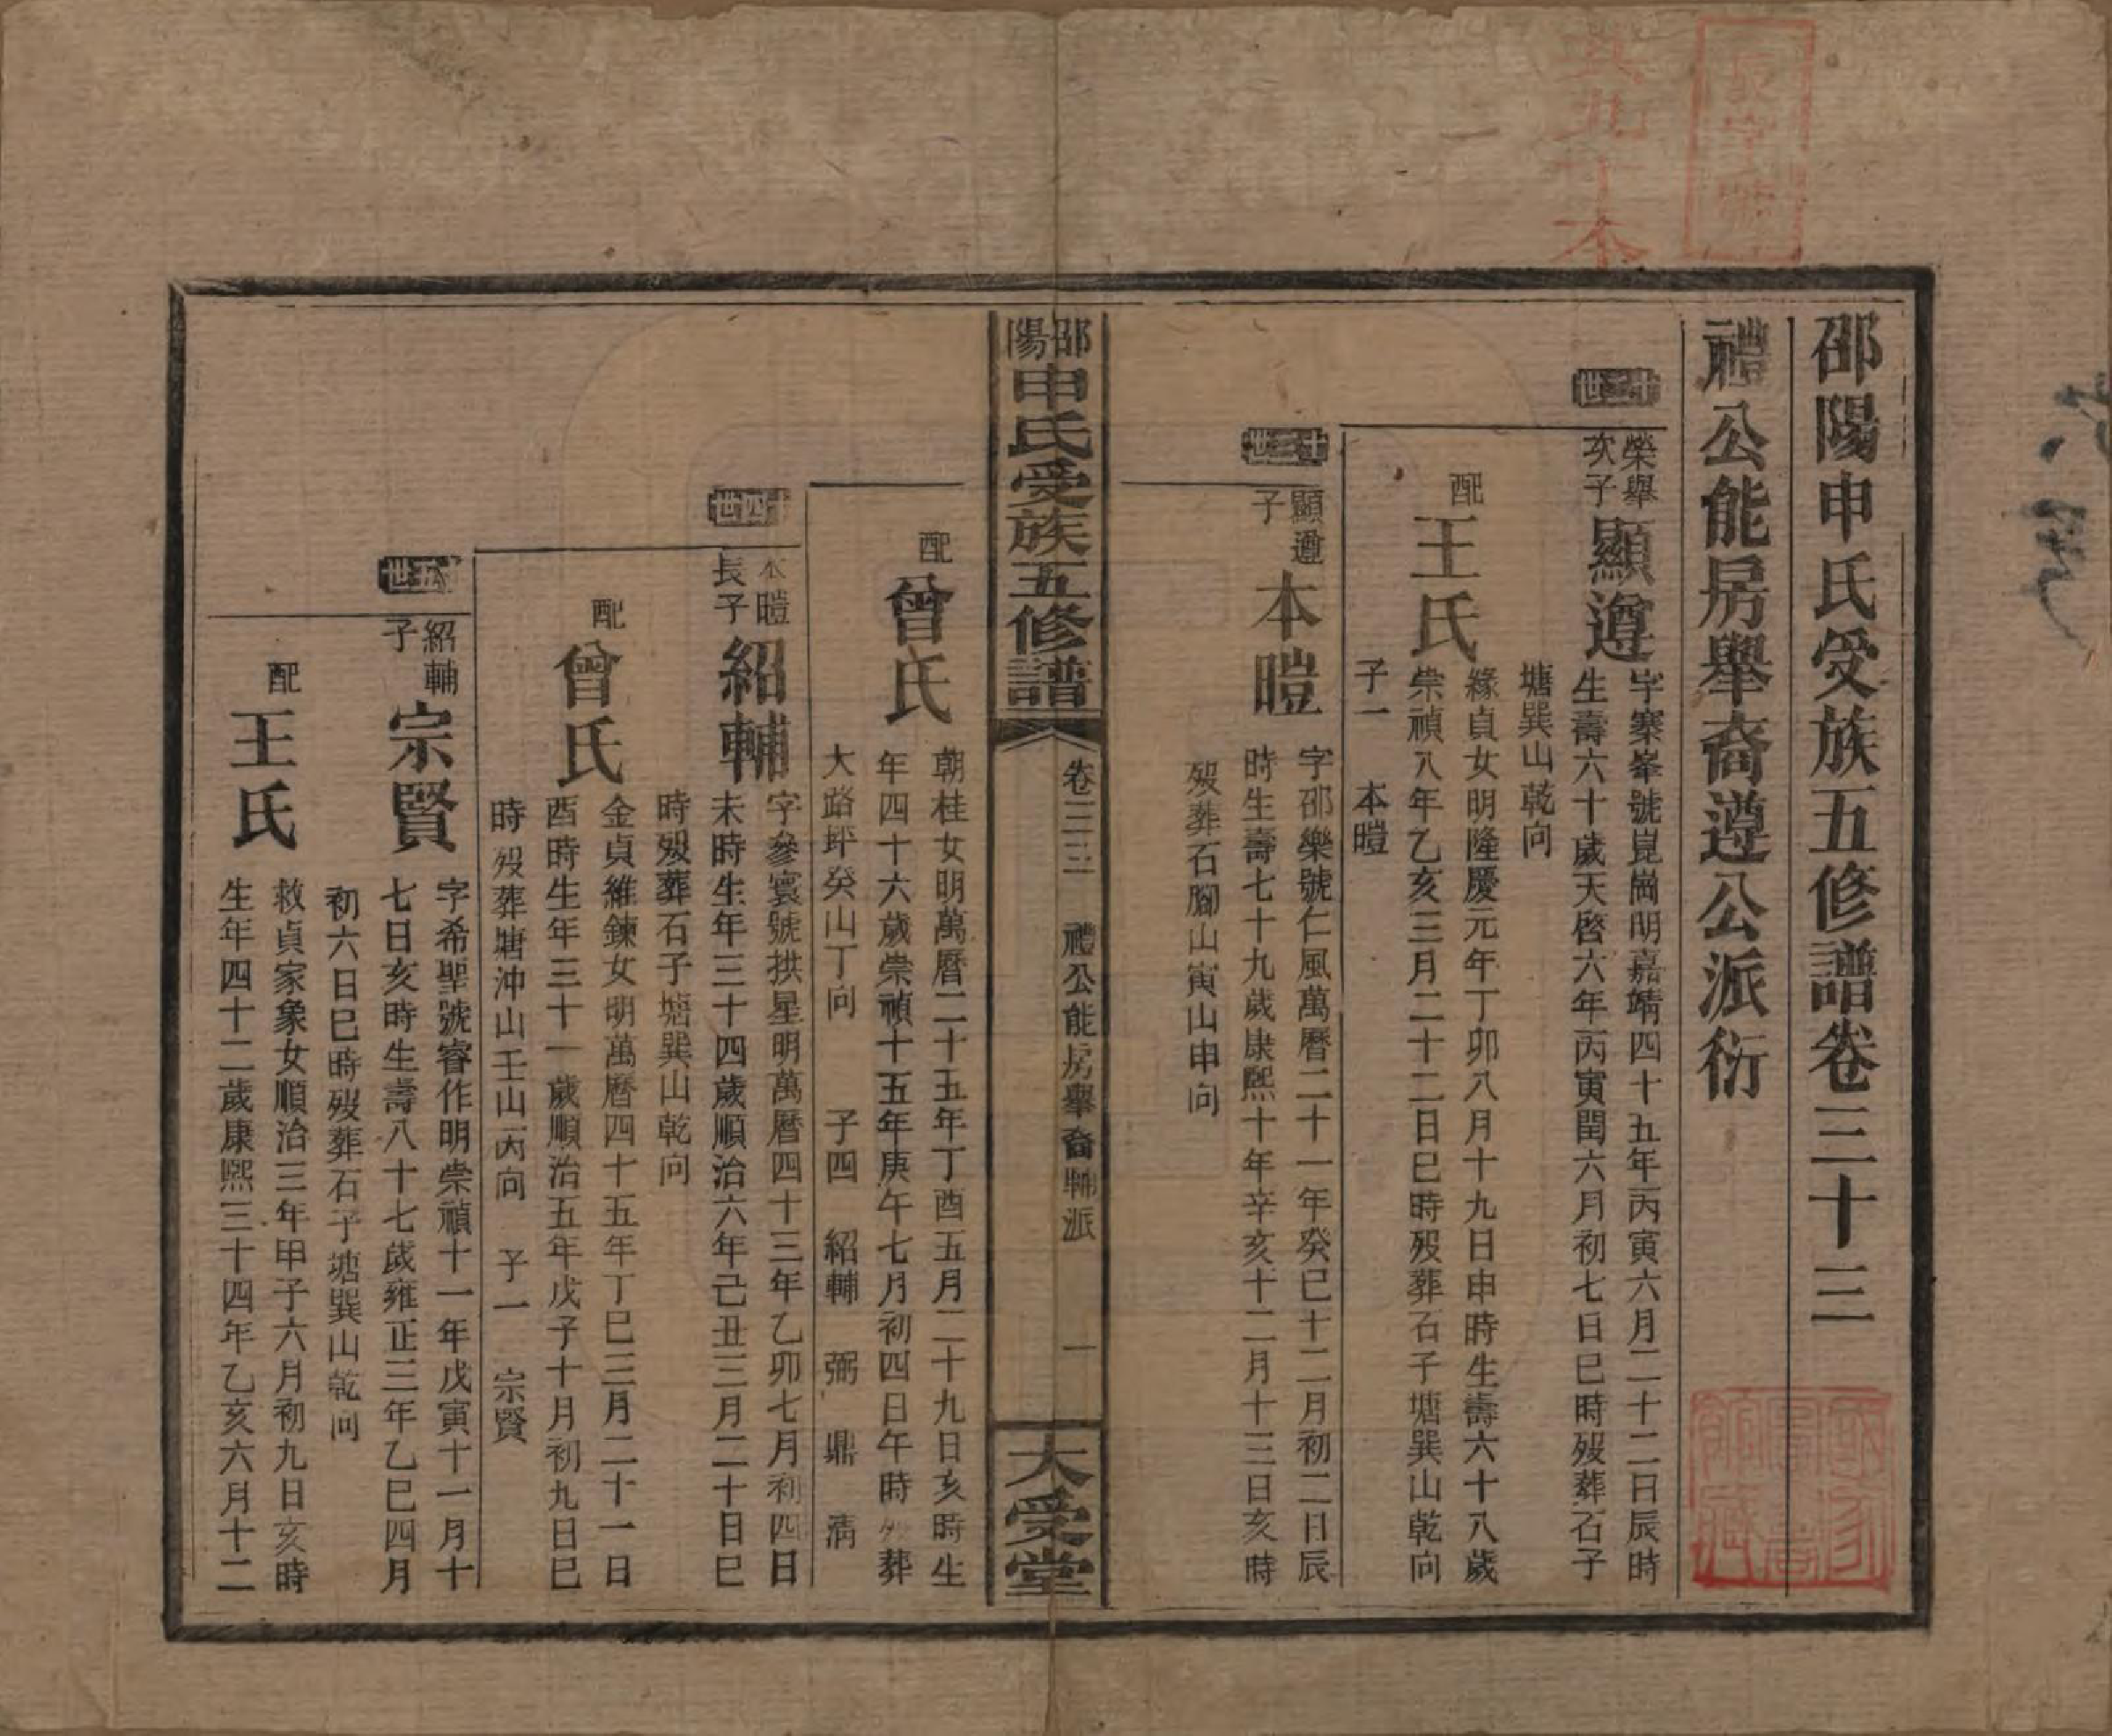 邵陽申氏受族五修譜卷三十三
禮公能房舉裔遵公派衍
十二世
榮舉
次子
顯遵
字寨峯號崑崗明嘉靖四十五年丙寅六月二十二日辰時
生壽六十歲天啓六年丙寅閏六月初七日巳時歿葬石子
塘巽山乾向
配
王氏
緣貞女明隆慶元年丁卯八月十九日申時生壽六十八歲
崇禎八年乙亥三月二十二日巳時歿葬石子塘巽山乾向
子一 本暟
十三世
顯遵
子
本暟
字邵樂號仁風萬曆二十一年癸巳十二月初二日辰
時生壽七十九歲康熙十年辛亥十二月十三日亥時
歿葬石腳山寅山申向
邵陽申氏受族五修譜
卷三三 禮公能房舉裔輔派
一
大受堂
配
曾氏
朝桂女明萬曆二十五年丁酉五月二十九日亥時生
年四十六歲崇禎十五年庚午七月初四日午時歿葬
大路坪癸山丁向 子四 紹輔 弼 鼎 清
十四世
本暟
長子
紹輔
字參寰號拱星明萬曆四十三年乙卯七月初四日
未時生年三十四歲順治六年己丑三月二十日巳
時歿葬石子塘巽山乾向
配
曾氏
金貞維鍊女明萬曆四十五年丁巳三月二十一日
酉時生年三十一歲順治五年戊子十月初九日巳
時歿葬塘沖山壬山丙向 子一 宗賢
十五世
紹輔
子
宗賢
字希聖號睿作明崇禎十一年戊寅十一月十
七日亥時生壽八十七歲雍正三年乙巳四月
初六日巳時歿葬石子塘巽山乾向
配
王氏
敕貞家象女順治三年甲子六月初九日亥時
生年四十二歲康熙三十四年乙亥六月十二